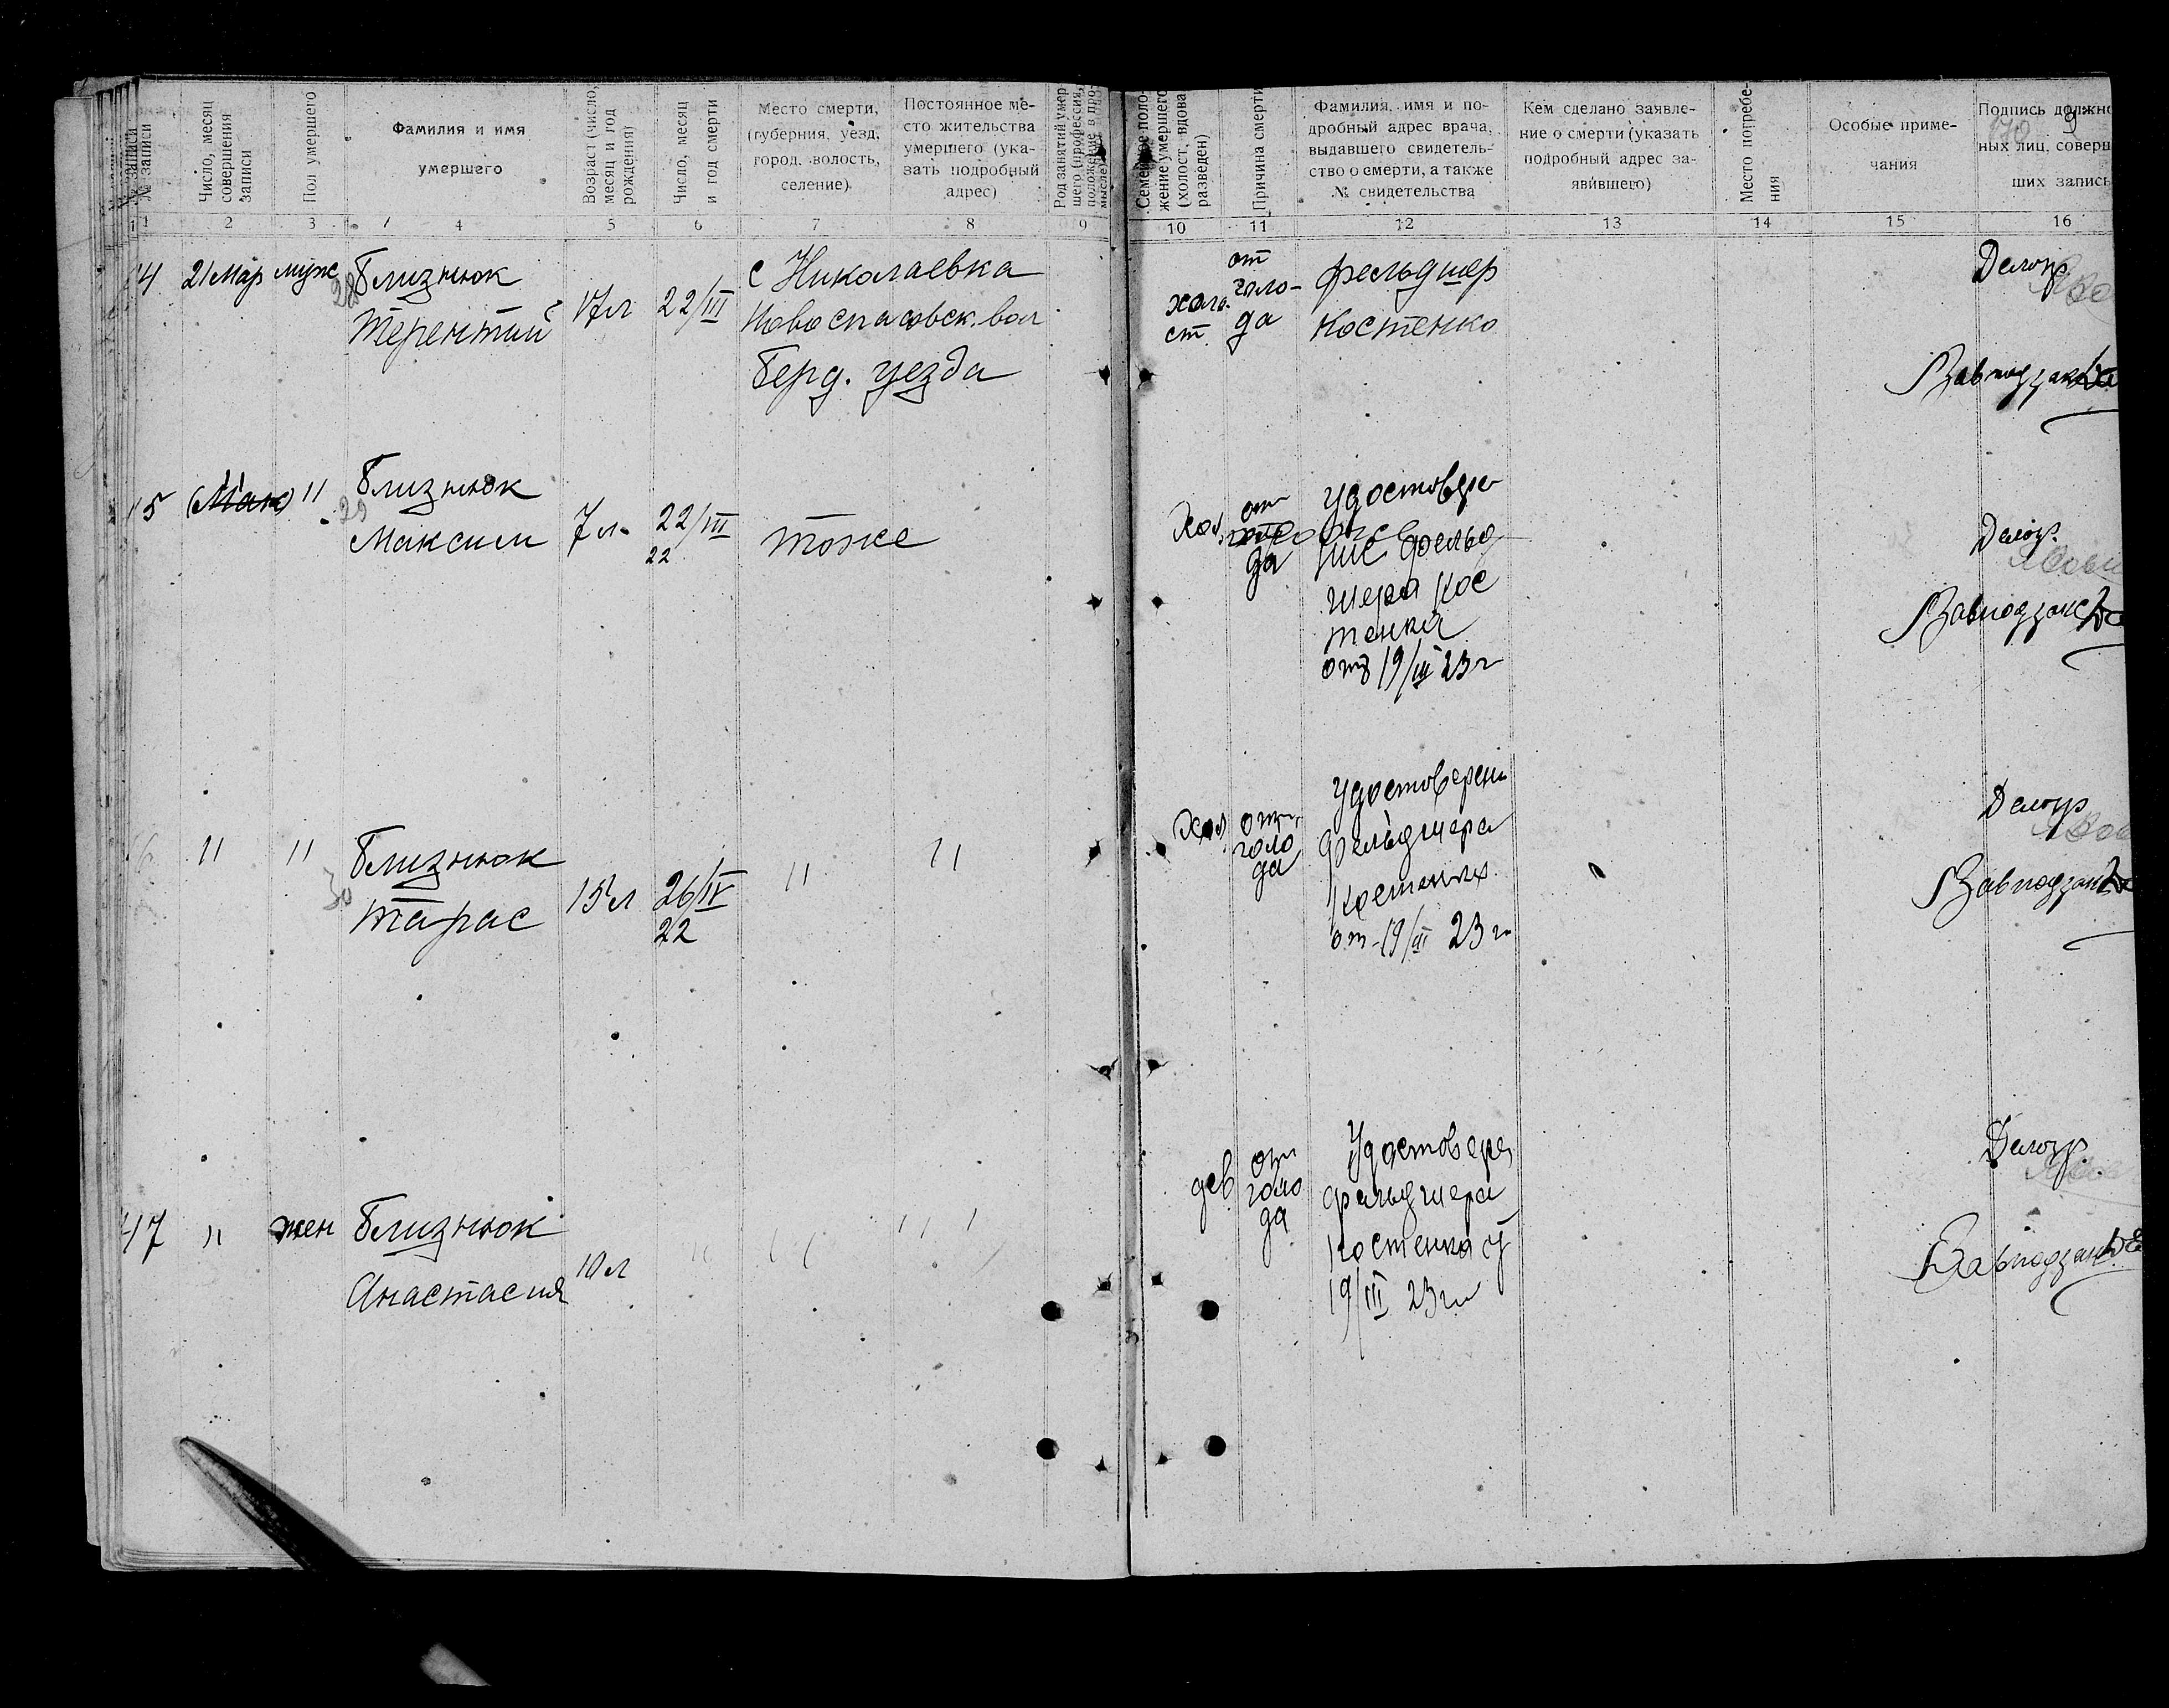 № записи
Число, месяц
совершения
записи
Пол умершего
Фамилия и имя
умершего
Возраст (число,
месяц и год
рождения)
Число, месяц
и год смерти
Место смерти,
(губерния, уезд,
город, волость,
селение)
Постоянное ме-
сто жительства
умершего (ука-
зать подробный
адрес)
Род занятий умер-
шего (профессия,
положение в про-
мысле)
Семейное поло-
жение умершего
(холост, вдова
разведен)
Причина смерти
Фамилия, имя и по-
дробный адрес врача,
выдавшего свидетель-
ство о смерти, а также
№ свидетельства
Кем сделано заявле-
ние о смерти (указать
подробный адрес за-
явившего)
Место погребе-
ния
Особые приме-
чания
Подпись должно
ных лиц, соверш
ших запись
1 2 3 4 5 6 7 8 9 10 11 12 13 14 15 16
14 21 Мар муж
28
Близнюк
Терентий
17 л
22/III
с Николаевка
Новоспасовск. вол
Берд. уезда
холо-
ст.
от
голо-
да
фельдшер
Костенко
Делопр
Завподзаг
15 (Мак) 11
29
Близнюк
Максим
7 л.
22/III
22
тоже
Хол.
от
да
Удостовере
ние фельд
шера Кос
тенка
от 19/III 23 г
Делопр.
Завподзаг
11 11
30
Близнюк
Тарас
15 л
26/IV
22
11
11
Хол
от
голо
да
Удостоверени
фельдшера
Костенка
от 19/III 23 г
Делопр
Завподзаг
47 11 жен
Близнюк
Анастасия
10 л
11
дев
от
голо
да
Удостовере
фельдшера
Костенка от
19/III 23 г
Делопр.
Завподзаг